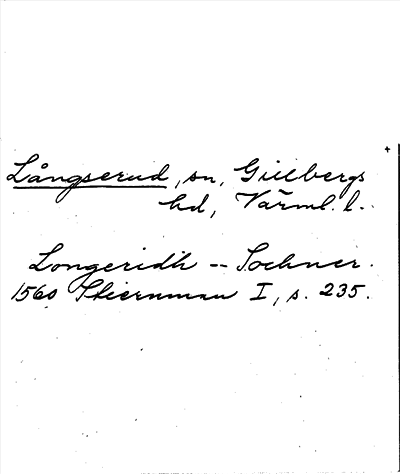 +
Långserud, sn, Gillbergs
hd, Värml. l.
Longeridh -- Sochner.
1560 Stiernman I, s. 235.